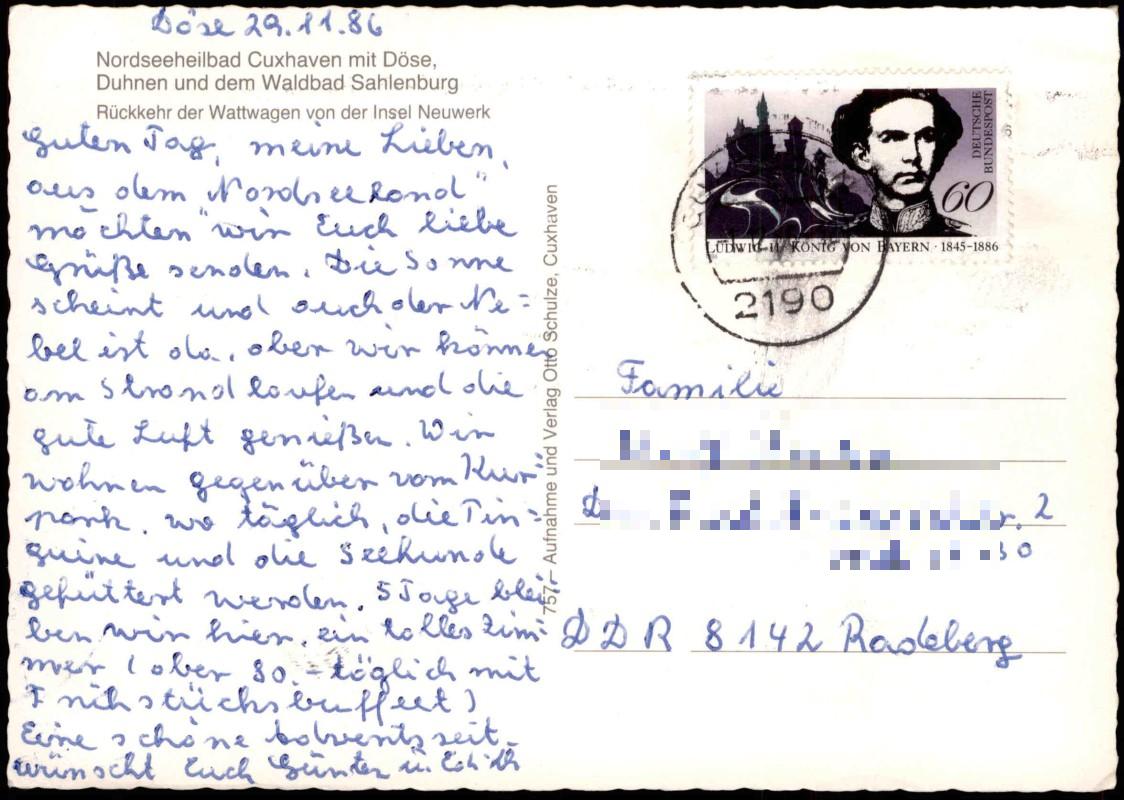 Döse 29.11.86
Nordseeheilbad Cuxhaven mit Döse,
Duhnen und dem Waldbad Sahlenburg
Rückkehr der Wattwagen von der Insel Neuwerk
Guten Tag, meine Lieben,
aus dem „Nordseerand"
möchten wir Euch liebe
Grüße senden. Die Sonne
scheint und auch der Ne=
bel ist da, aber wir können
am Strand laufen und die
gute Luft genießen. Wir
wohnen gegenüber vom Kur=
park, wo täglich, die Pin=
guine und die Seehunde
gefüttert werden. 5 Tage blei=
ben wir hier, ein tolles Zim=
mer (aber 80.- täglich mit
Frühstücksbuffeet)
Eine schöne Adventszeit
wünscht Euch Günter u. Edith
757 – Aufnahme und Verlag Otto Schulze, Cuxhaven
DEUTSCHE
BUNDESPOST
60
LUDWIG II. KÖNIG VON BAYERN · 1845-1886
2190
Familie
r. 2
DDR 8142 Radeberg